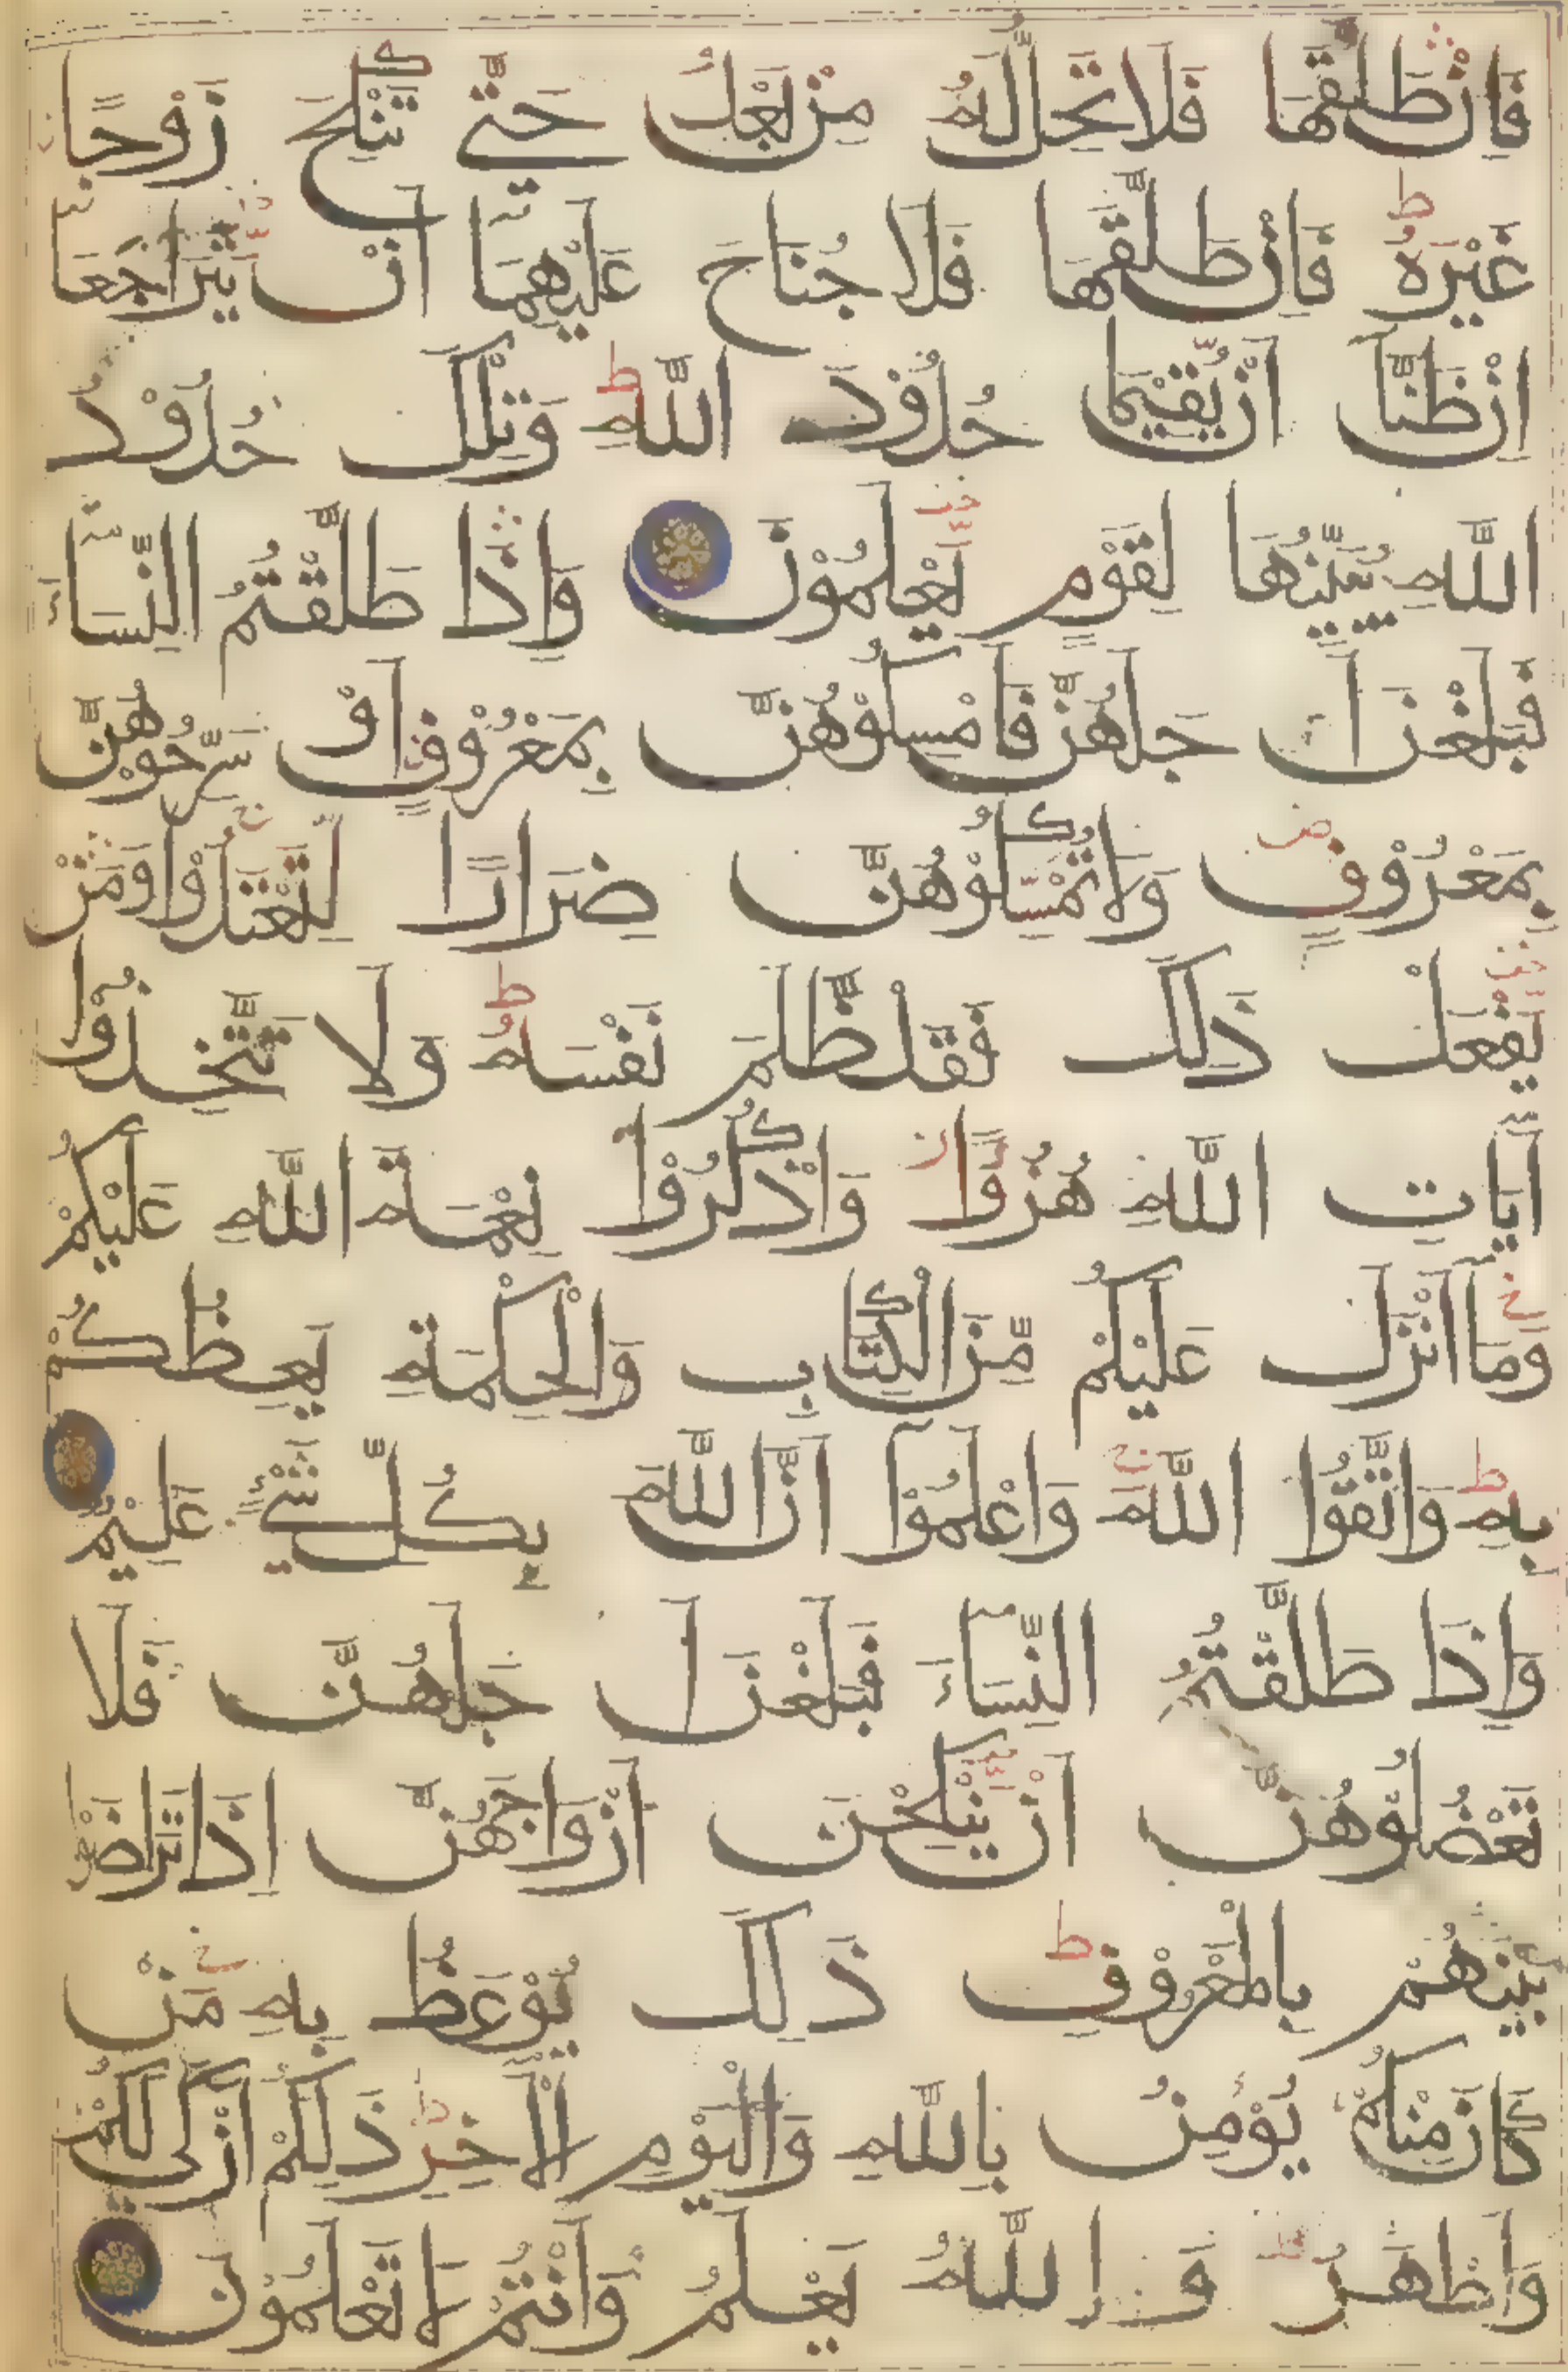 فَاِنْ طَلَّقَهَا فَلَا تَحِلُّ لَهُ مِنْ بَعْدُ حَتّٰى تَنْكِحَ زَوْجًا
غَيْرَهُ فَاِنْ طَلَّقَهَا فَلَا جُنَاحَ عَلَيْهِمَا اَنْ يَتَرَاجَعَا
اِنْ ظَنَّا اَنْ يُقِيْمَا حُدُوْدَ اللّٰهِ وَتِلْكَ حُدُوْدُ
اللّٰهِ يُبَيِّنُهَا لِقَوْمٍ يَعْلَمُوْنَ وَاِذَا طَلَّقْتُمُ النِّسَاءَ
فَبَلَغْنَ اَجَلَهُنَّ فَاَمْسِكُوْهُنَّ بِمَعْرُوْفٍ اَوْ سَرِّحُوْهُنَّ
بِمَعْرُوْفٍ وَلَا تُمْسِكُوْهُنَّ ضِرَارًا لِتَعْتَدُوْا وَمَنْ
يَفْعَلْ ذٰلِكَ فَقَدْ ظَلَمَ نَفْسَهُ وَلَا تَتَّخِذُوْا
اٰيَاتِ اللّٰهِ هُزُوًا وَاذْكُرُوْا نِعْمَةَ اللّٰهِ عَلَيْكُمْ
وَمَا اَنْزَلَ عَلَيْكُمْ مِنَ الْكِتَابِ وَالْحِكْمَةِ يَعِظُكُمْ
بِهِ وَاتَّقُوا اللّٰهَ وَاعْلَمُوْا اَنَّ اللّٰهَ بِكُلِّ شَيْءٍ عَلِيْمٌ
وَاِذَا طَلَّقْتُمُ النِّسَاءَ فَبَلَغْنَ اَجَلَهُنَّ فَلَا
تَعْضُلُوْهُنَّ اَنْ يَنْكِحْنَ اَزْوَاجَهُنَّ اِذَا تَرَاضَوْا
بَيْنَهُمْ بِالْمَعْرُوْفِ ذٰلِكَ يُوْعَظُ بِهِ مَنْ
كَانَ مِنْكُمْ يُؤْمِنُ بِاللّٰهِ وَالْيَوْمِ الْاٰخِرِ ذٰلِكُمْ اَزْكٰى لَكُمْ
وَاَطْهَرُ وَاللّٰهُ يَعْلَمُ وَاَنْتُمْ لَا تَعْلَمُوْنَ